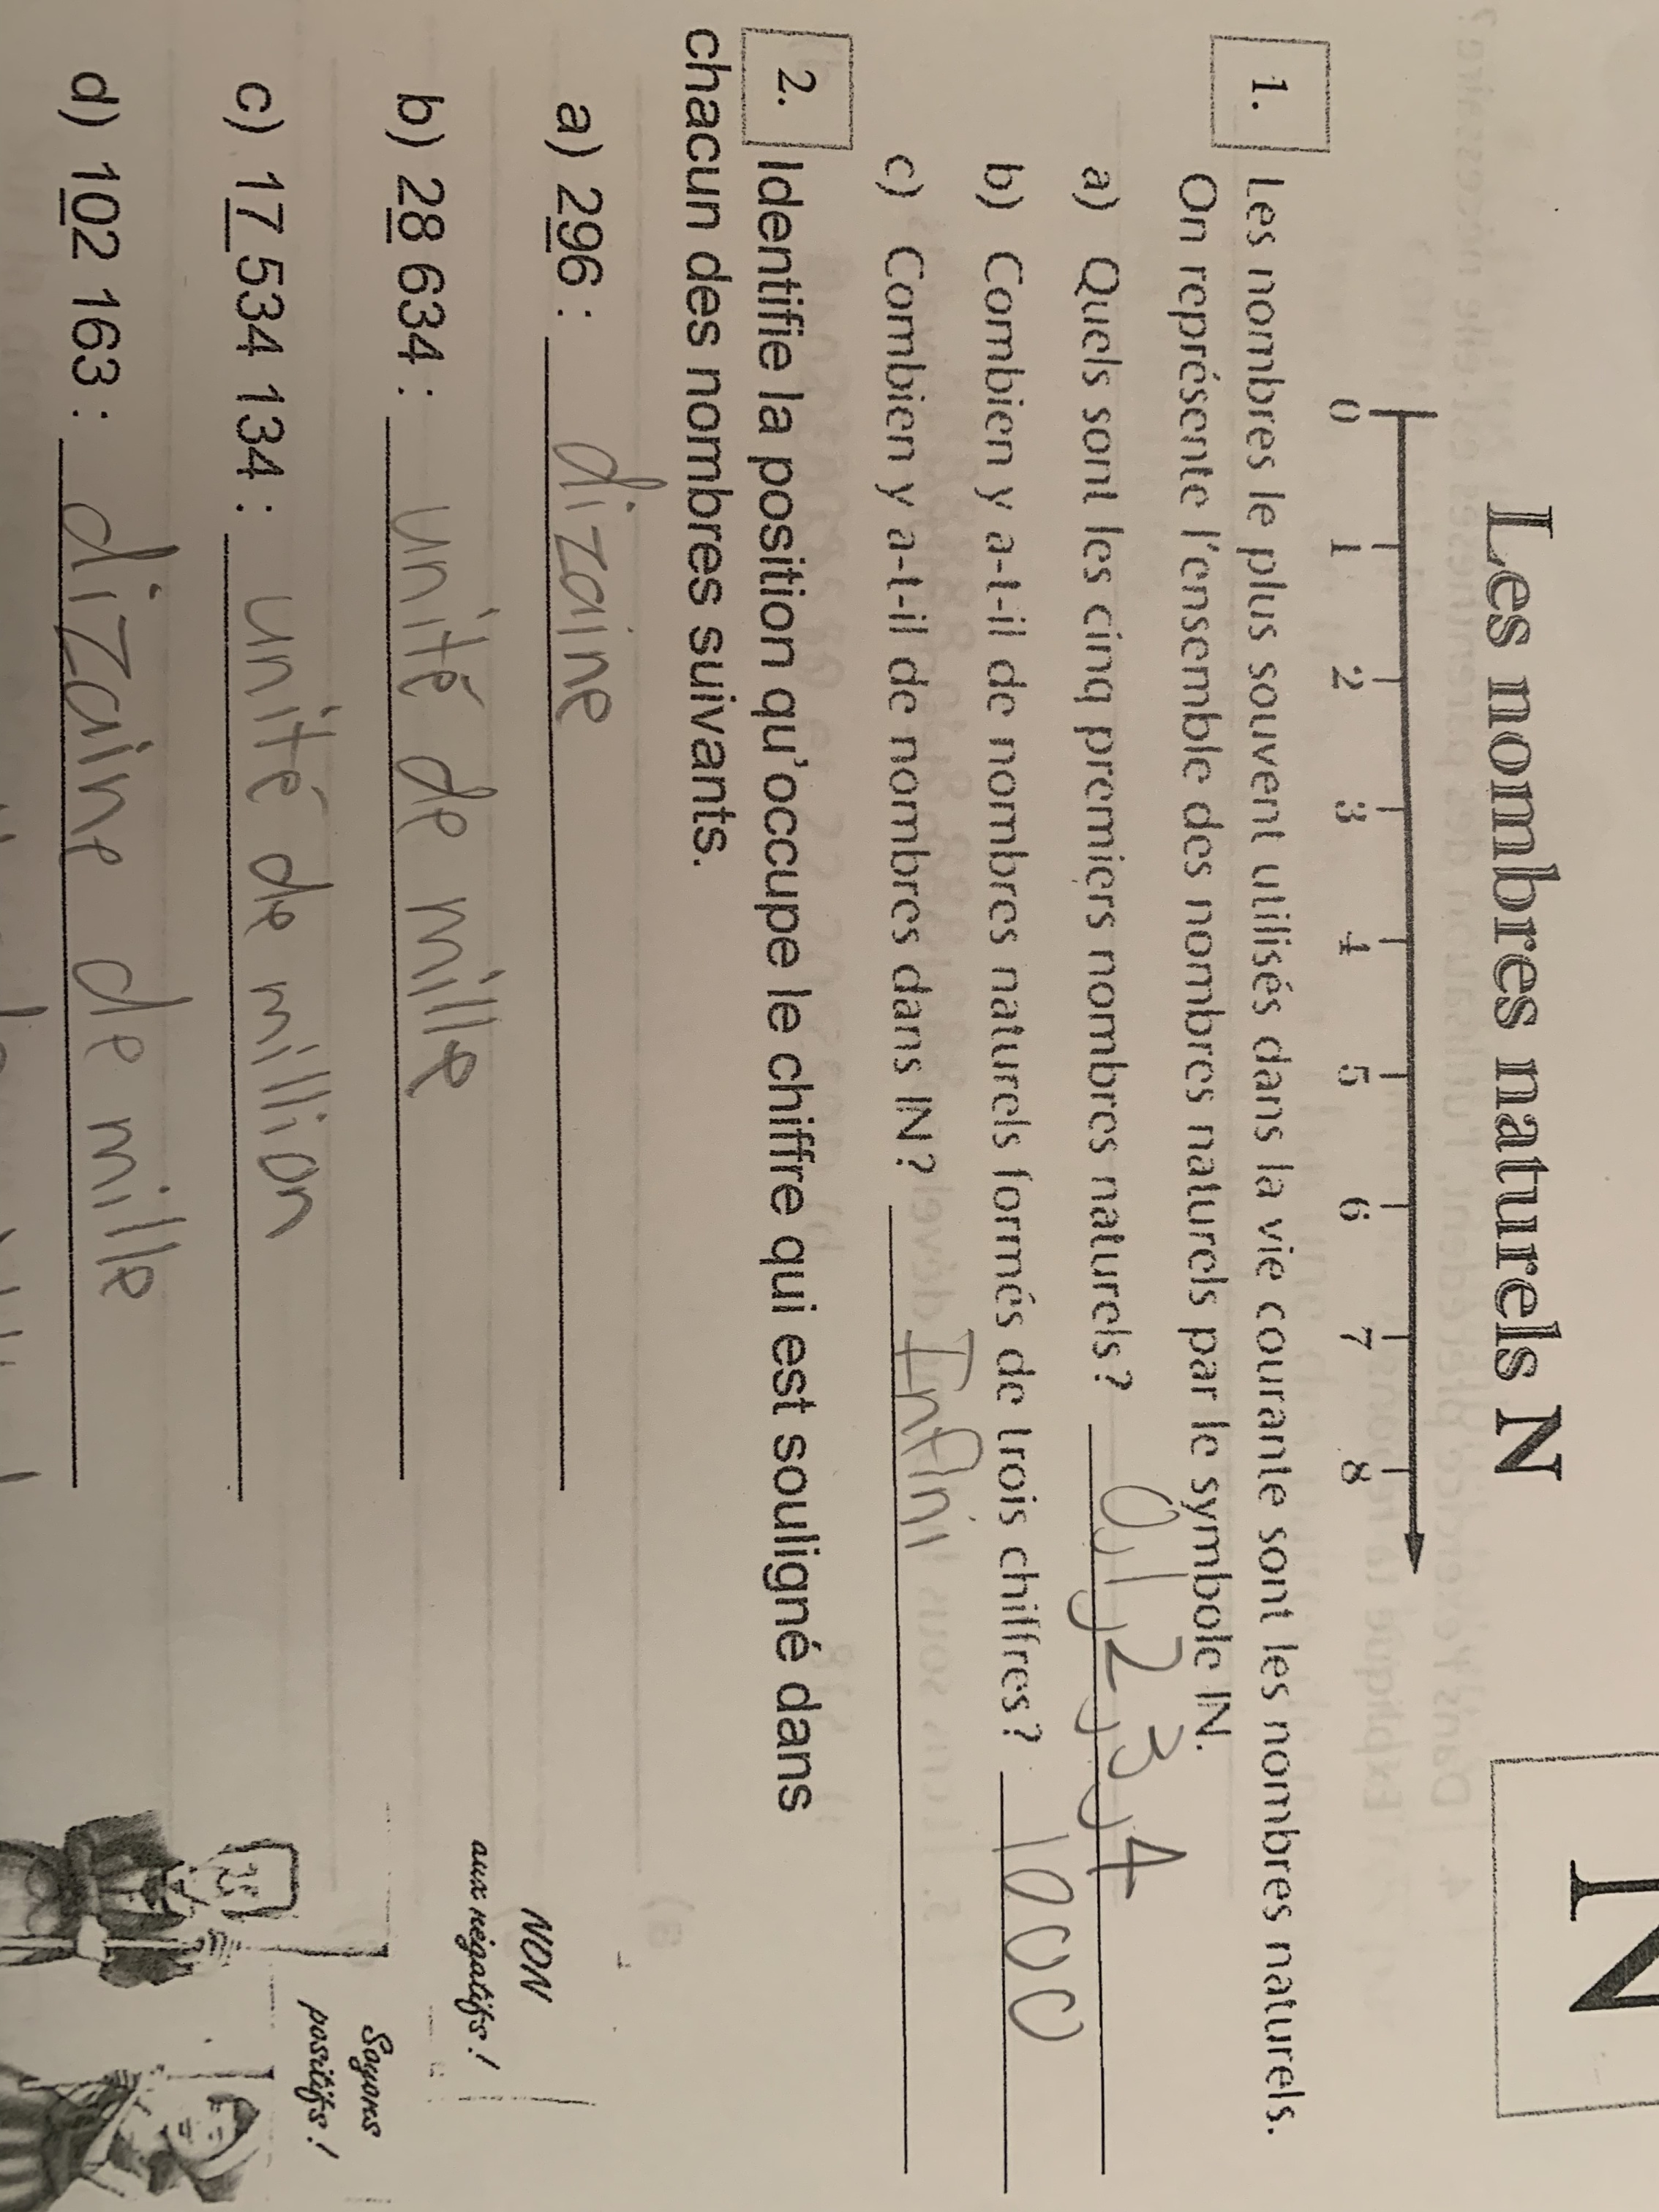 Les nombres naturels N
N
0 1 2 3 4 5 6 7 8
1. Les nombres le plus souvent utilisés dans la vie courante sont les nombres naturels.
On représente l'ensemble des nombres naturels par le symbole IN.
a) Quels sont les cinq premiers nombres naturels? 0, 1, 2, 3, 4
b) Combien y a-t-il de nombres naturels formés de trois chiffres? 1000
c) Combien y a-t-il de nombres dans IN? Infini
2. Identifie la position qu'occupe le chiffre qui est souligné dans
chacun des nombres suivants.
a) 296 : dizaine
b) 28 634 : unité de mille
c) 17 534 134 : unité de million
d) 102 163 : dizaine de mille
NON
aux négatifs !
Soyons
positifs !